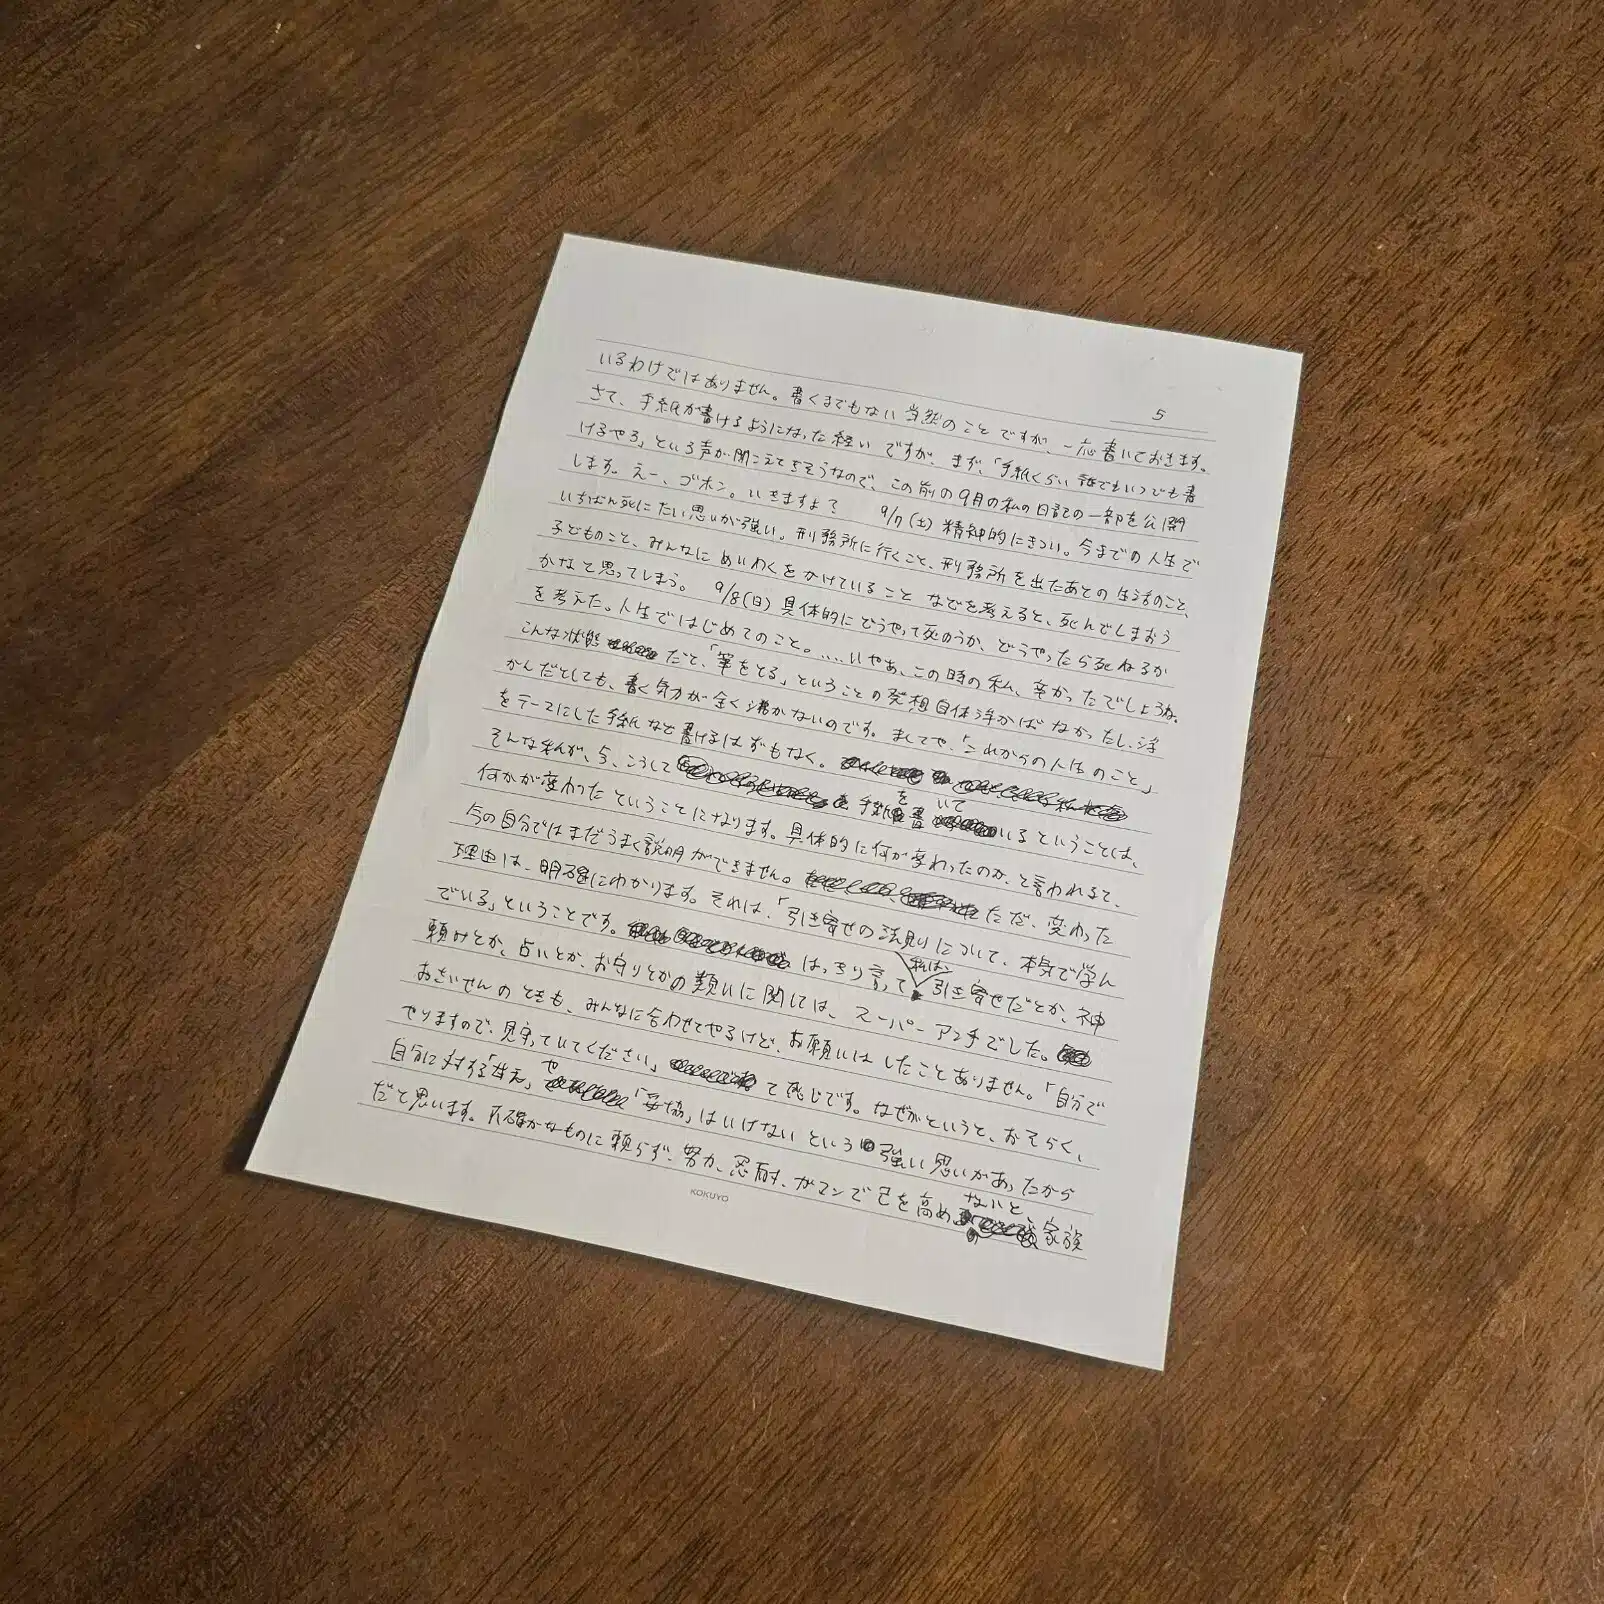 5
いるわけではありません。書くまでもない当然のことですが、一応書いておきます。
さて、手紙が書けるようになった経いですが、まず、「手紙くらい誰でもいつでも書
けるやろ」という声が聞こえてきそうなので、この前の9月の私の日記の一部を公開
します。えー、ゴホン。いきますよ? 9/7(土)精神的にきつい。今までの人生で
いちばん死にたい思いが強い。刑務所に行くこと、刑務所を出たあとの生活のこと、
子どものこと、みんなにめいわくをかけていることなどを考えると、死んでしまおう
かなと思ってしまう。 9/8(日)具体的にどうやって死のうか、どうやったら死ねるか
を考えた。人生ではじめてのこと。....いやあ、この時の私、辛かったでしょうね。
こんな状態だと、「筆をとる」ということの発想自体浮かばなかったし、浮
かんだとしても、書く気力が全く沸かないのです。ましてや、「これからの人生のこと」
をテーマにした手紙など書けるはずもなく。
そんな私が、今、こうして手紙を書いているということは、
何かが変わったということになります。具体的に何が変わったのか、と言われると、
今の自分ではまだうまく説明ができません。ただ、変わった
理由は、明確にわかります。それは、「引き寄せの法則について、本気で学ん
でいる」ということです。はっきり言って私は、引き寄せだとか、神
頼みとか、占いとか、お守りとかの類いに関しては、スーパーアンチでした。
おさいせんのときも、みんなに合わせてやるけど、お願いはしたことありません。「自分で
やりますので、見守っていてください」て感じです。なぜかというと、おそらく、
自分に対する「甘え」や「妥協」はいけないという強い思いがあったから
だと思います。不確かなものに頼らず、努力、忍耐、ガマンで己を高めないと、家族
KOKUYO